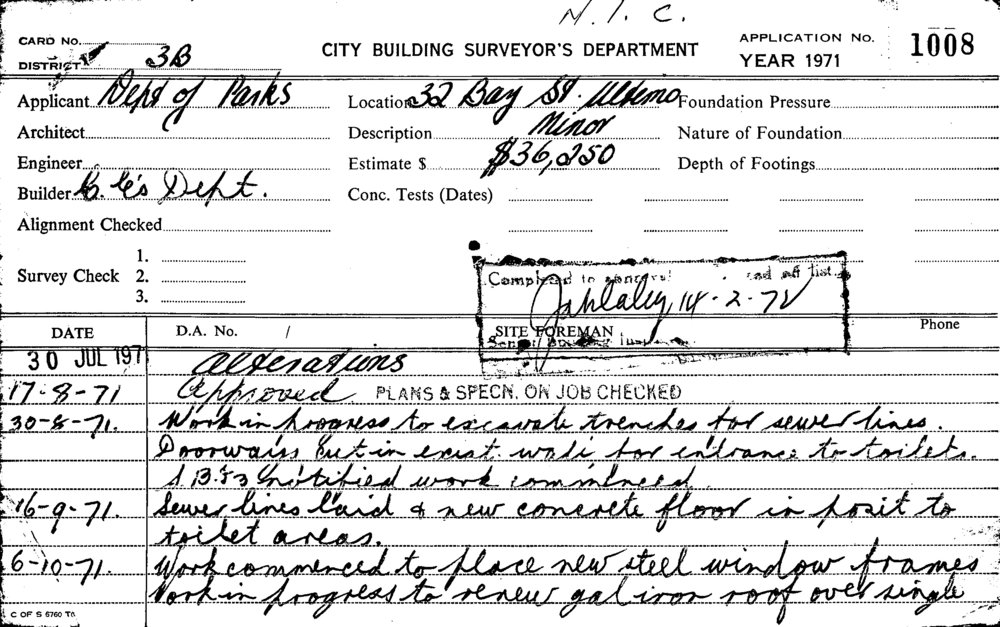 N. I. C.
CARD No.
DISTRICT 3B
CITY BUILDING SURVEYOR'S DEPARTMENT
APPLICATION No. 1008
YEAR 1971
Applicant Dept of Parks
Location 32 Bay St. Ultimo
Foundation Pressure
Architect
Description Minor
Nature of Foundation
Engineer
Estimate $ $36,250
Depth of Footings
Builder Dept.
Conc. Tests (Dates)
Alignment Checked
Survey Check
1.
2.
3.
Completed to and off list.
14-2-72
SITE FOREMAN
Phone
DATE
D.A. No. /
30 JUL 1971 Alterations
17-8-71 Approved PLANS & SPECN. ON JOB CHECKED
30-8-71. Work in progress to excavate trenches for sewer lines.
Doorways cut in exist. walls for entrance to toilets.
notified work commenced.
16-9-71. Sewer lines laid & new concrete floor in posit to
toilet areas.
6-10-71. Work commenced to place new steel window frames
Work in progress to renew gal iron roof over single
C OF S 6760 TA